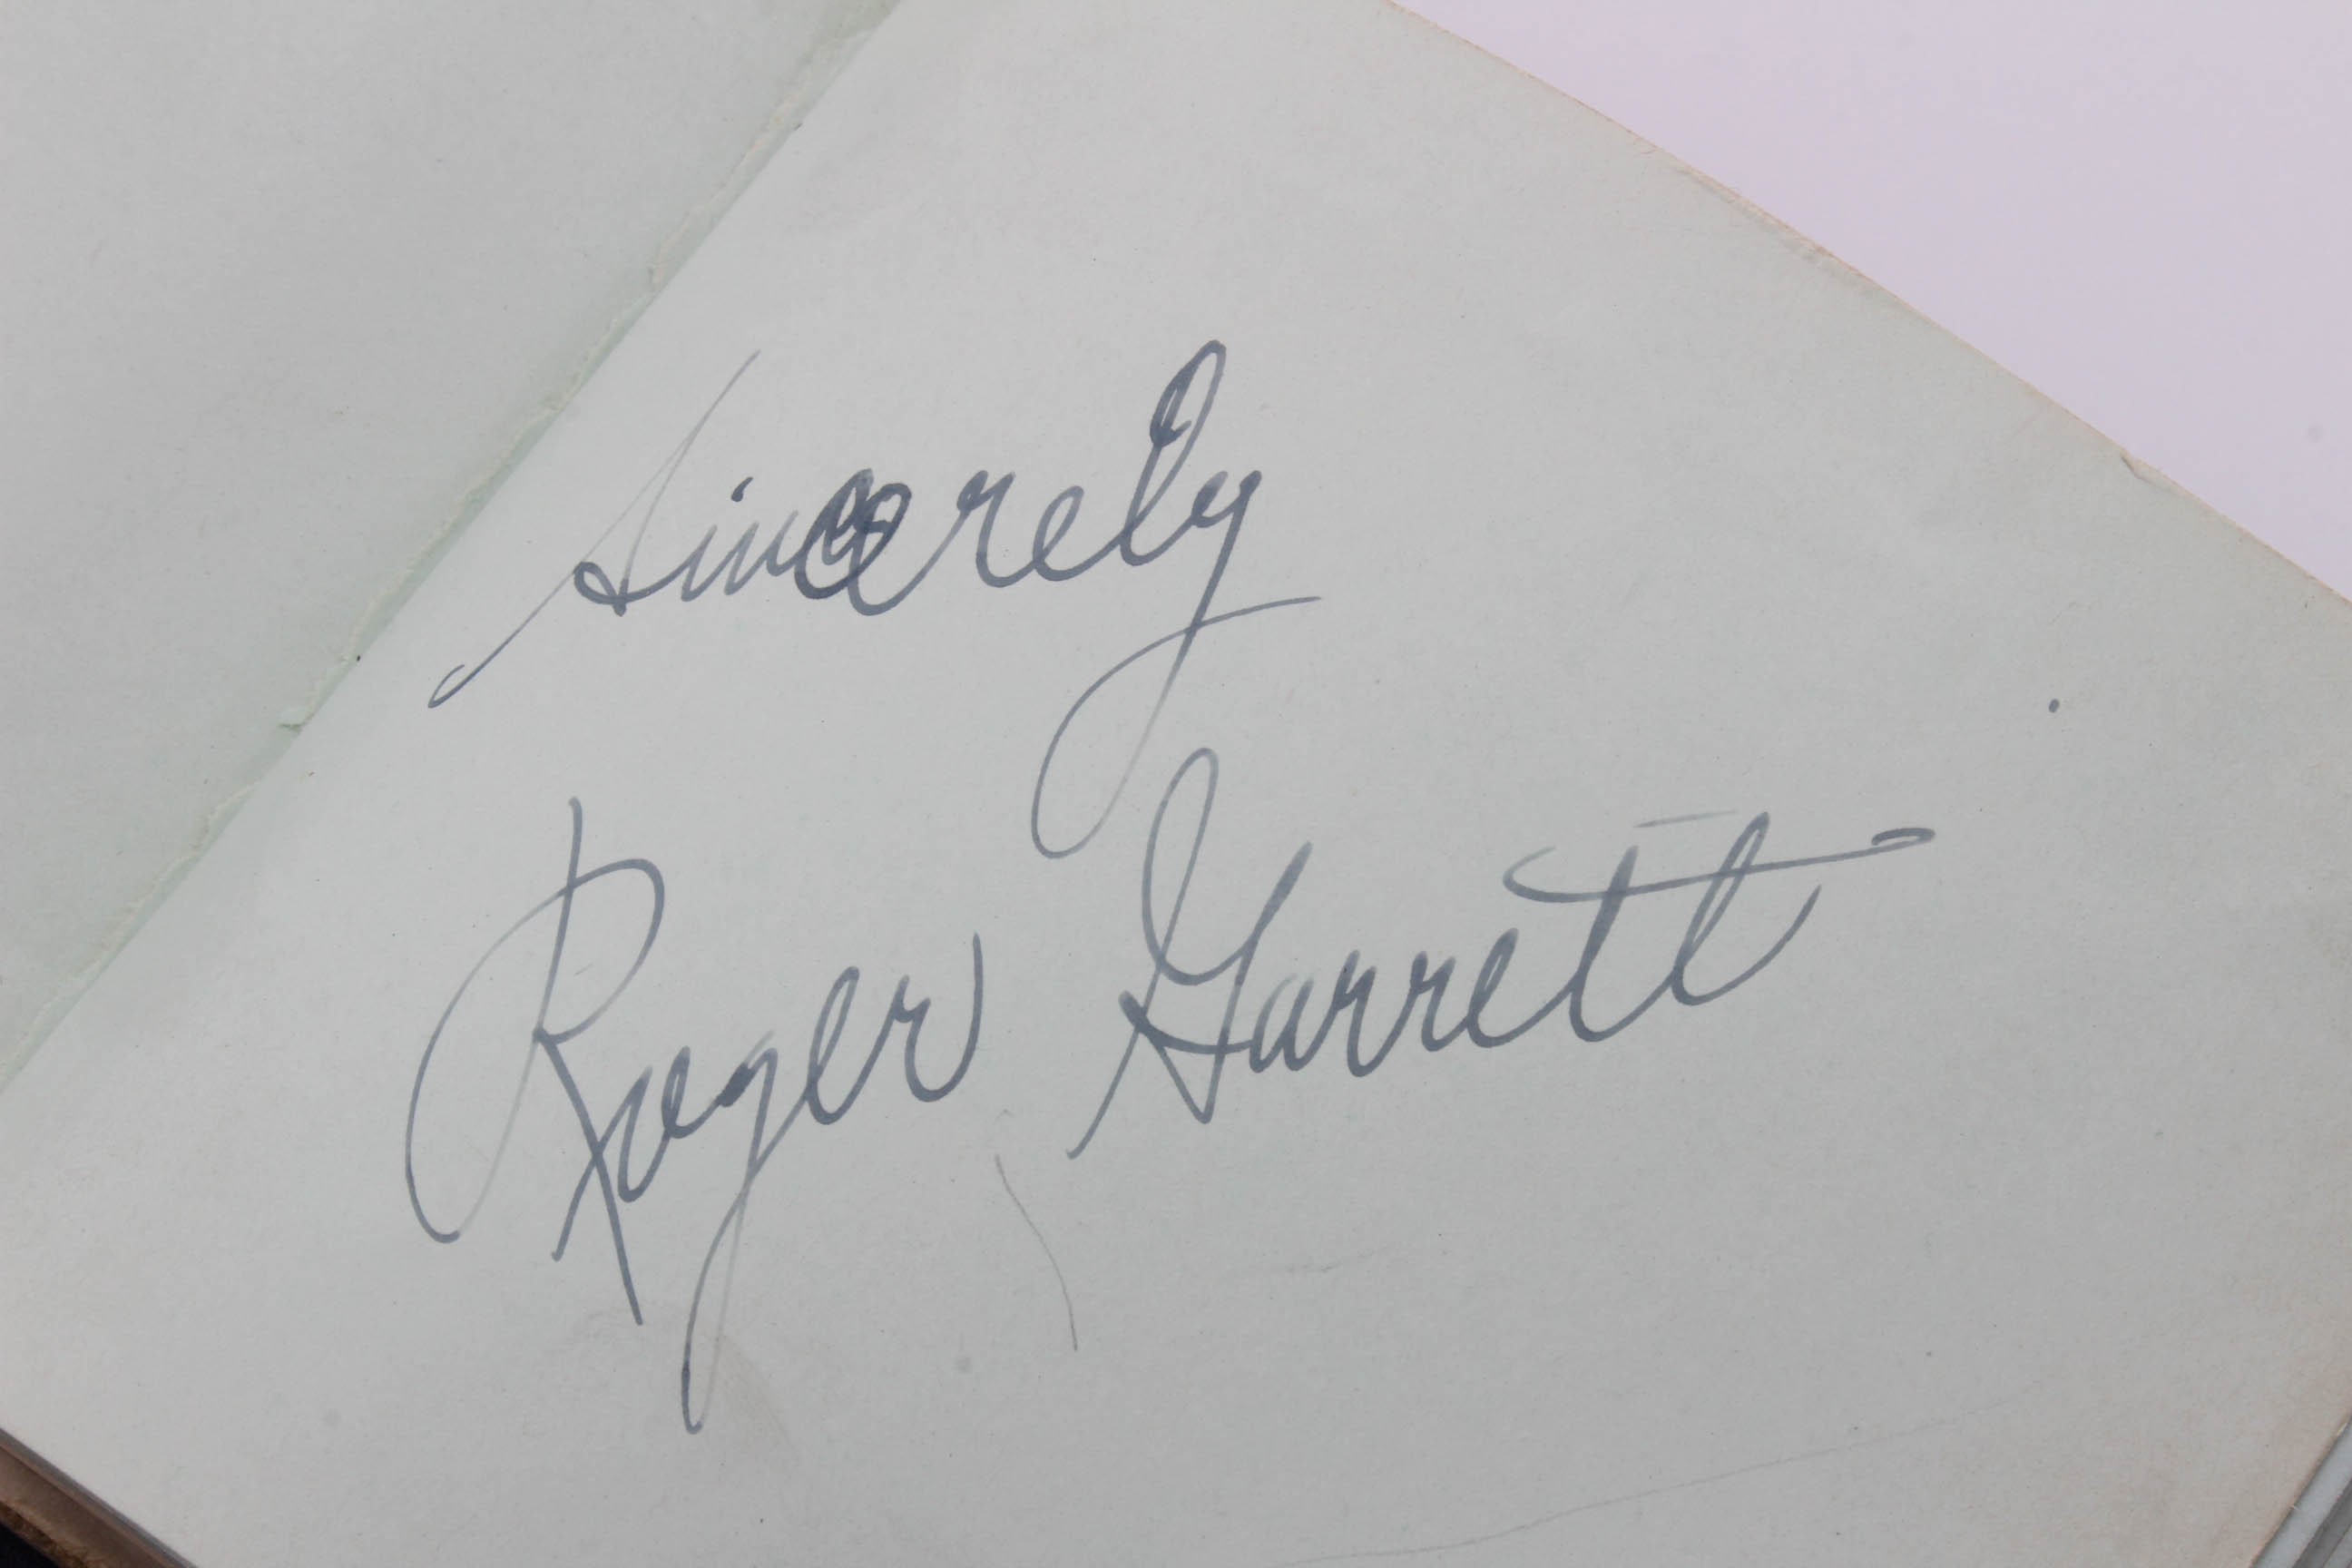 Sincerely
Roger Garrett